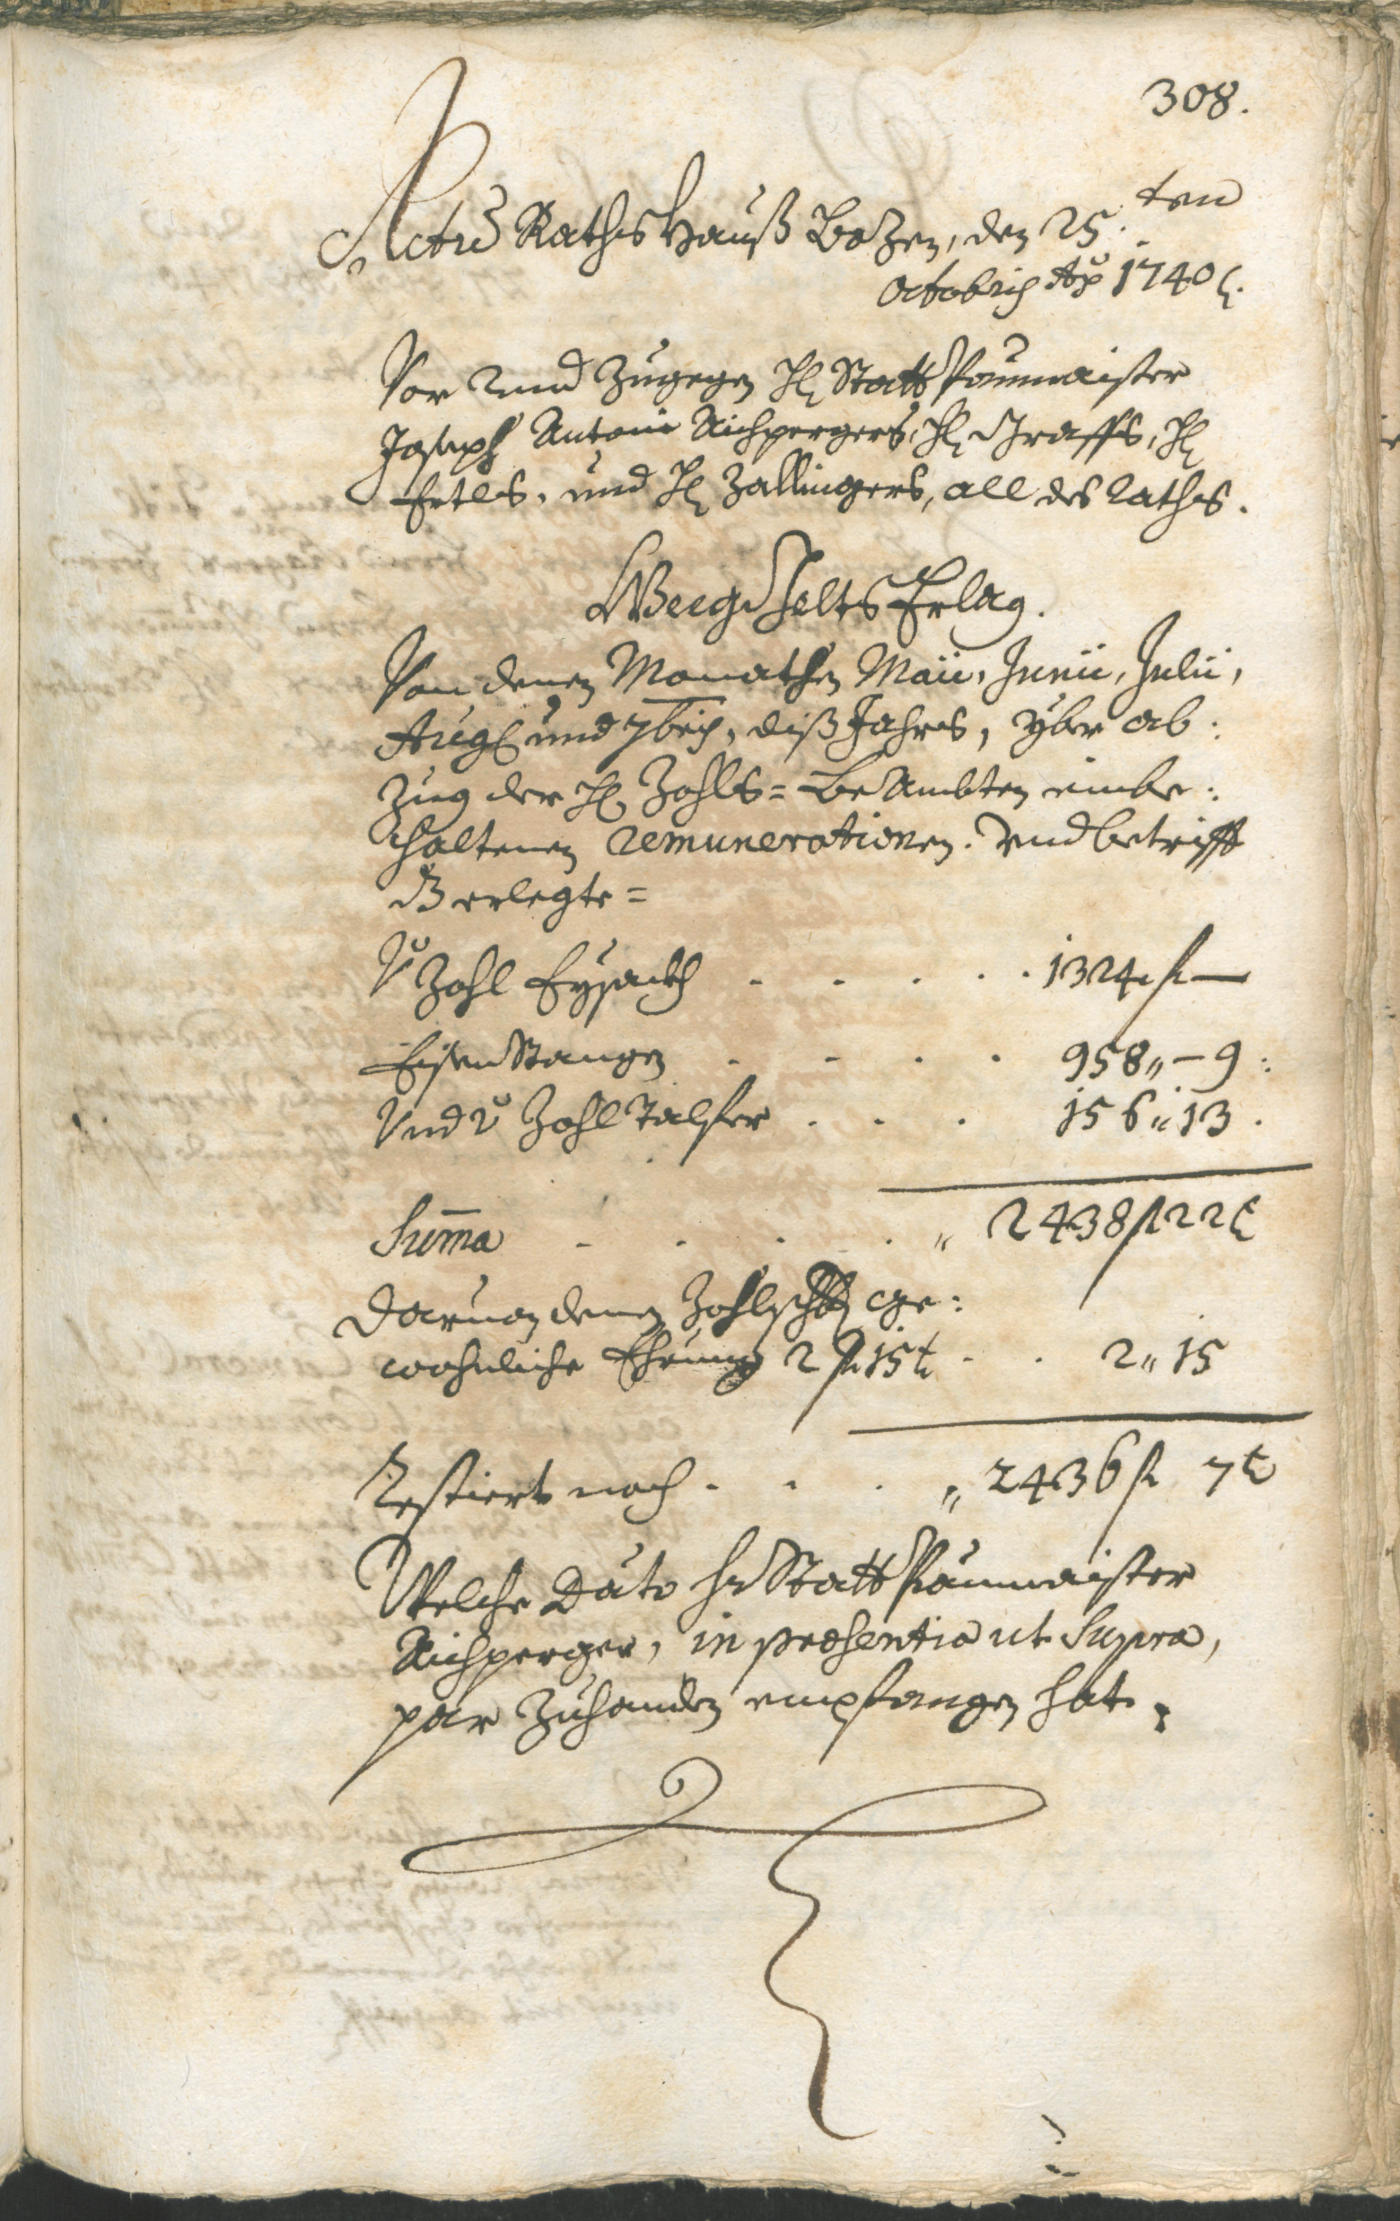 308.
Actū Raths Hauß Bozen, den 25.ten
Octobris Ao 1740.
Vor und zugegen H: Statt Paumaister
Joseph Antoni Aichpergers, H: Graffs, H:
Ertls, und H: Zallingers, all des Raths.
Weeg Gelts Erlag.
Von denen Monathen Maii, Junii, Julii,
Aug: und 7bris, diß Jahrs, yber ab:
zug der H: Zohls=Be Ambten einbe:
haltenen remunerationen. Und betrifft
d Erlegte=
Vo Zohl Eysackh . . . . . 1324 f —
Eisen Stangen . . . . 958 „ — 9 :
Und v Zohl Talfer . . . 156 „ 13 .
Suma . . . . . „ 2438 f 22 x
Daruon denen Zohlschr: ge:
wohnliche Ehrung 2 f 15 x . . 2 „ 15
Restiert noch . . . „ 2436 f 7 x
Welche Dato H: Statt Paumaister
Aichperger, in præsentia ut Supra,
par zuhanden empfangen hat.